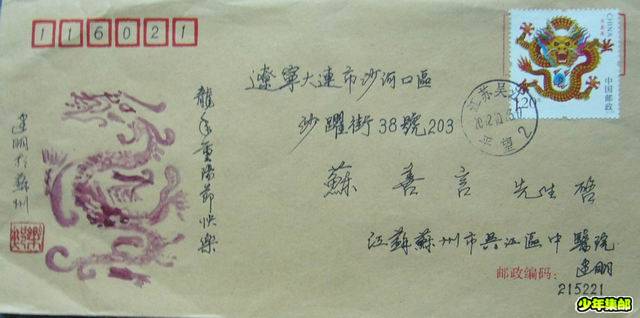 116021
CHINA
中国邮政
1.20
遼寧大連市沙河口區
沙躍街38號203
江苏吴江
平望
2
龍年重陽節快樂
蘇善言 先生啓
建明於蘇州
江蘇蘇州市吳江區中醫院
建明
邮政编码：
215221
少年集邮